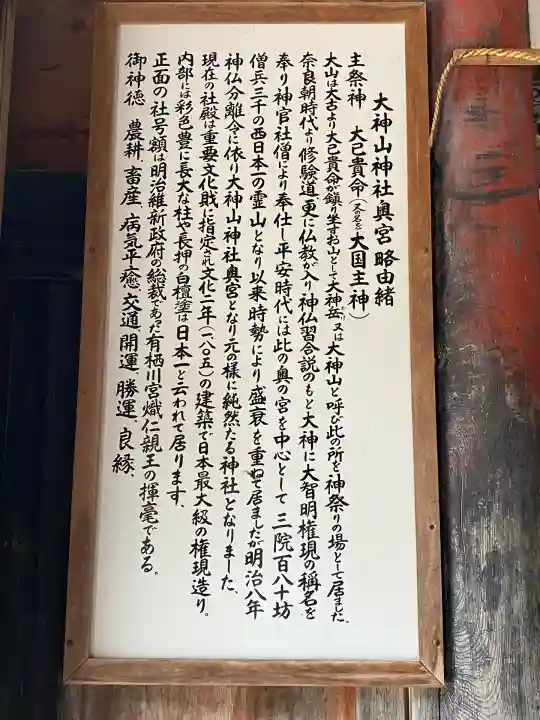 大神山神社奥宮略由緒
主祭神 大己貴命(又の名を大国主神)
大山は太古より大己貴命が鎮り坐すお山として大神岳又は大神山と呼び此の所を神祭りの場として居ました、
奈良朝時代より修験道更に仏教が入り神仏習合説のもと大神に大智明権現の稱名を
奉り神官社僧により奉仕し平安時代には此の奥の宮を中心として三院百八十坊
僧兵三千の西日本一の霊山となり以来時勢により盛衰を重ねて居ましたが明治八年
神仏分離令に依り大神山神社奥宮となり元の様に純然たる神社となりました、
現在の社殿は重要文化財に指定され文化二年(一八〇五)の建築で日本最大級の権現造り。
内部には彩色豊に長大な柱や長押の白檀塗は日本一と云われて居ります、
正面の社号額は明治維新政府の総裁であった有栖川宮熾仁親王の揮毫である。
御神徳 農耕、畜産、病気平癒、交通、開運、勝運、良縁、